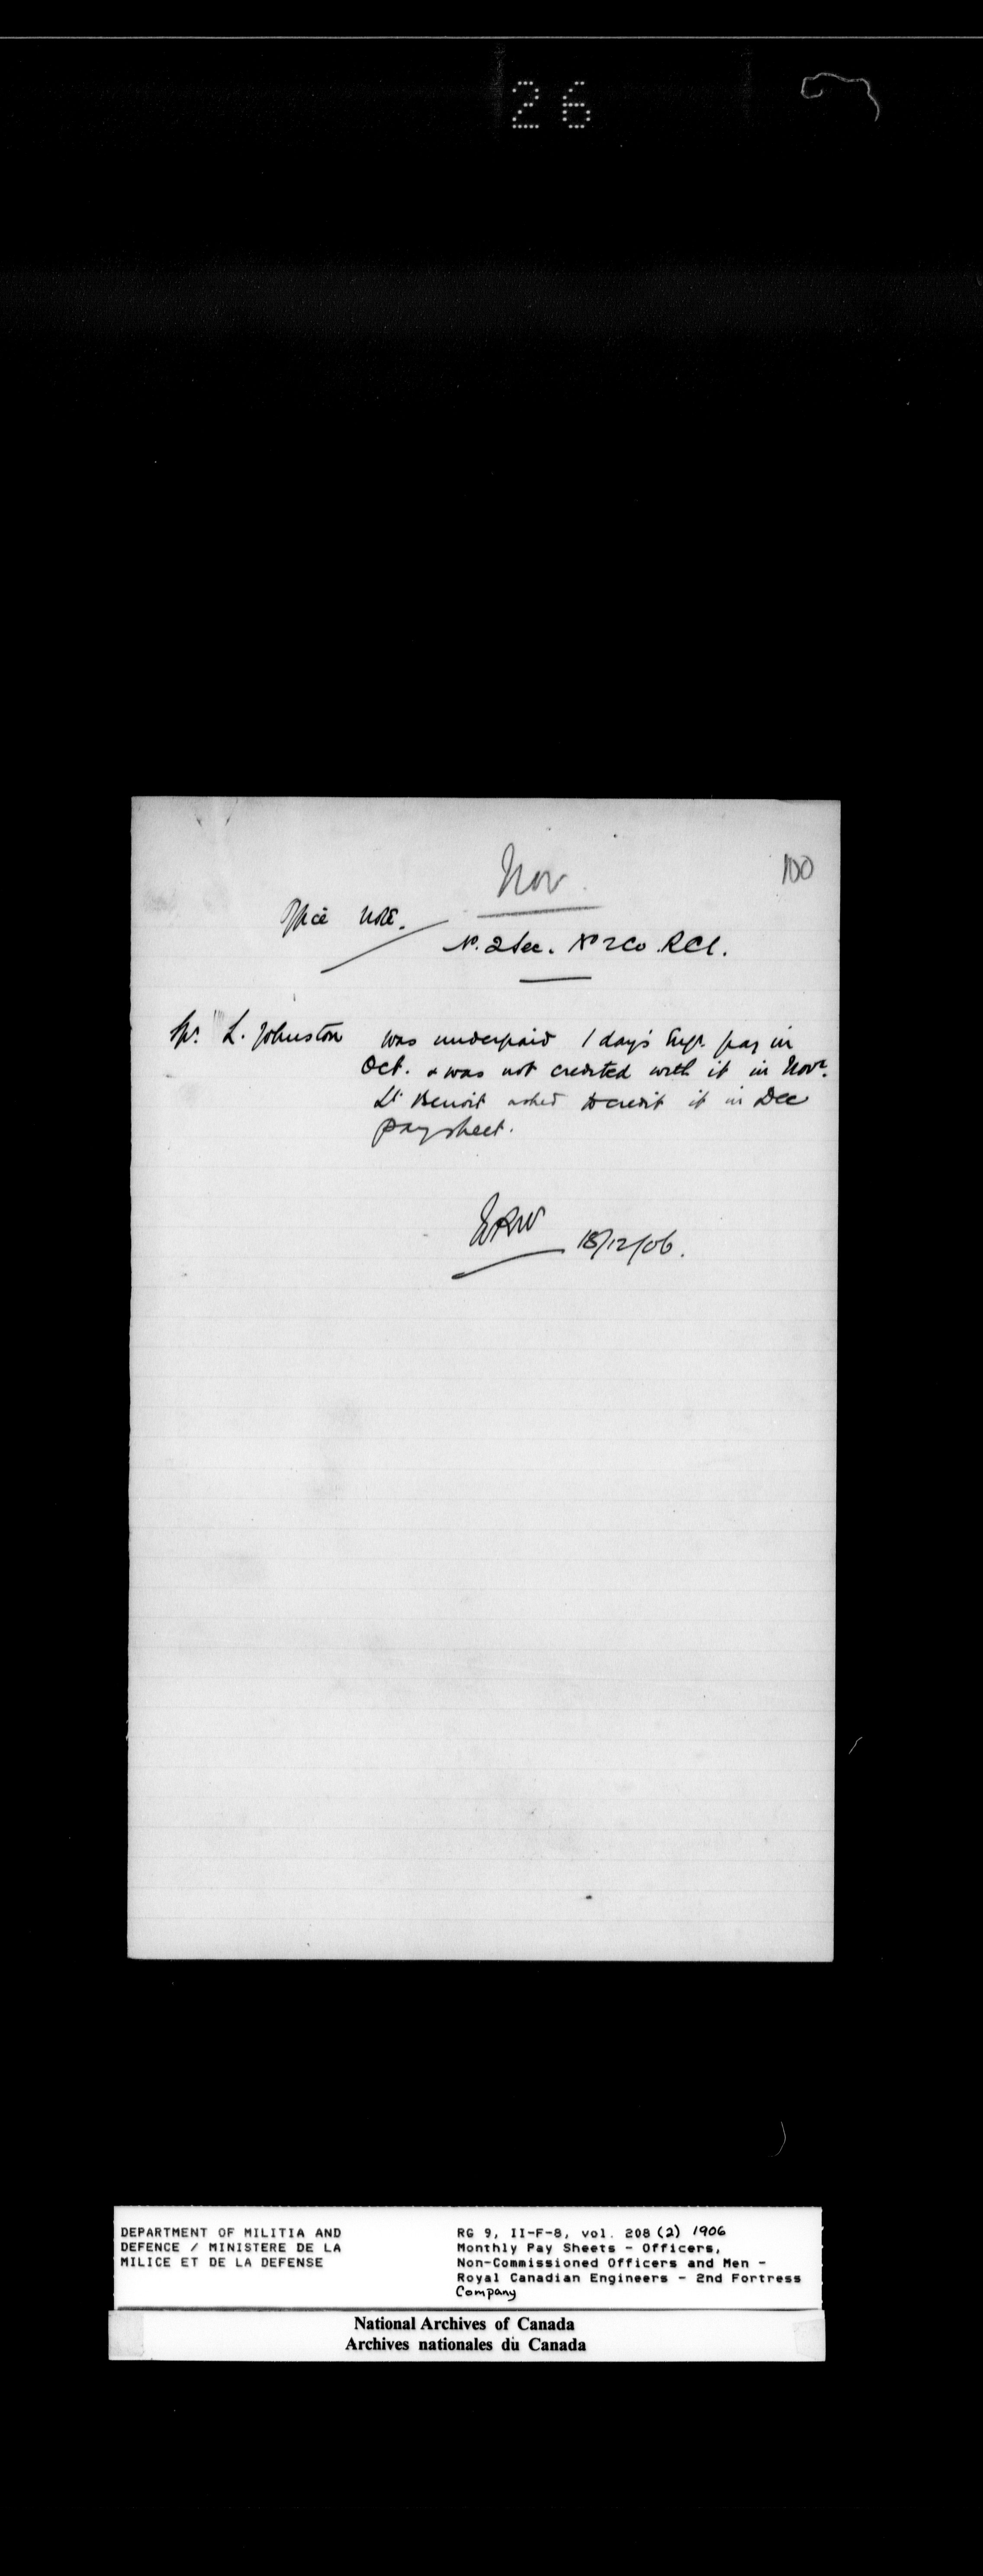 26
Nov
100
Office Note.
No. 2 Sec. No 2 Co. RCE.
Spr. L. Johnston was underpaid 1 day's Engr. pay in
Oct. & was not credited with it in Novr.
Lt Benoit asked to credit it in Dec
paysheet.
18/12/06.
DEPARTMENT OF MILITIA AND
DEFENCE / MINISTERE DE LA
MILICE ET DE LA DEFENSE
RG 9, II-F-8, vol. 208 (2) 1906
Monthly Pay Sheets - Officers,
Non-Commissioned Officers and Men -
Royal Canadian Engineers - 2nd Fortress
Company
National Archives of Canada
Archives nationales du Canada